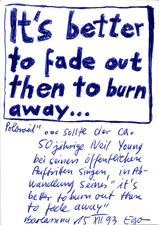 It's better
to fade out
then to burn
away...
"... sollte der ca.
50jährige Neil Young
bei seinen öffentlichen
Auftritten singen, in Ab-
wandlung seines "it's
better to burn out then
to fade away"
15 XII 93 Ego